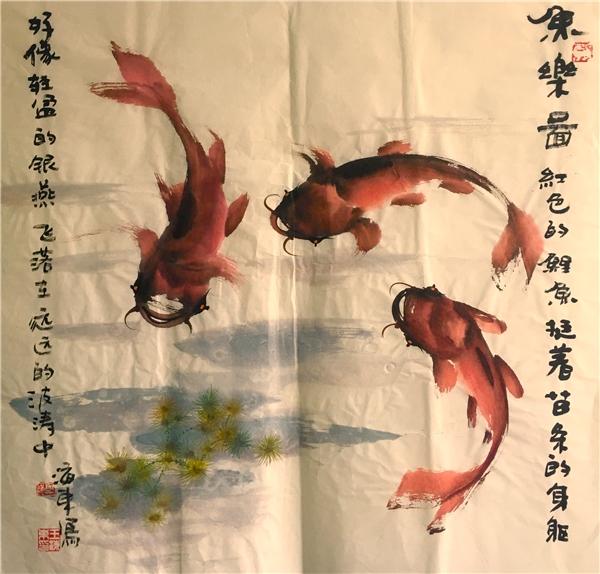 魚樂圖 紅色的鯉魚挺着苗条的身躯
好像轻盈的银燕飞落在远远的波涛中
海東